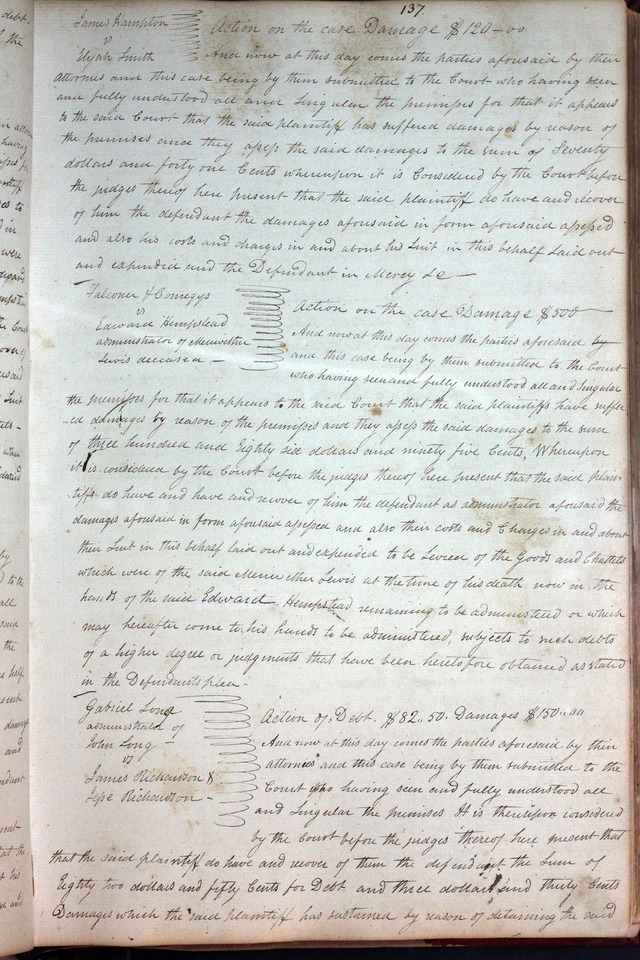 137
James Hampton
vs
Elijah Smith
Action on the case Damage $120-00
And now at this day comes the parties aforesaid by their
attornies and this case being by them submitted to the Court who having seen
and fully understood all and Singular the premises for that it appears
to the said Court that the said plaintiff has suffered damages by reason of
the premises and they assess the said damages to the sum of Seventy
dollars and forty one Cents whereupon it is Considered by the Court before
the judges thereof here present that the said plaintiff do have and recover
of him the defendant the damages aforesaid in form aforesaid assessed
and also his costs and charges in and about his Suit in this behalf laid out
and expended and the Defendant in Mercy &c
Falconer & Comegys
vs
Edward Hempstead
administrator of Meriwether
Lewis deceased -
Action on the case Damage $500
And now at this day comes the parties aforesaid by
and this case being by them submitted to the Court
who having seen and fully understood all and Singular
the premises for that it appears to the said Court that the said plaintiffs have suffer
ed damages by reason of the premises and they assess the said damages to the sum
of three hundred and Eighty six dollars and ninety five Cents, Whereupon
it is considered by the Court before the judges thereof here present that the said plain
tiffs do have and have and recover of him the defendant as administrator aforesaid the
damages aforesaid in form aforesaid assessed and also their costs and Charges in and about
their Suit in this behalf laid out and expended to be Levied of the Goods and Chattels
which were of the said Meriwether Lewis at the time of his death now in the
hands of the said Edward Hempstead remaining to be administered or which
may hereafter come to his hands to be administered, subjects to such debts
of a higher degree or judgments that have been heretofore obtained as stated
in the Defendants plea -
Gabriel Long
administrator of
John Long
vs
James Richardson &
Jesse Richardson -
Action of Debt. $82..50. Damages $150..00
And now at this day comes the parties aforesaid by their
attornies and this case being by them submitted to the
Court who having seen and fully understood all
and Singular the premises It is thereupon considered
by the Court before the judges thereof here present that
that the said plaintiff do have and recover of them the defendant the Sum of
Eighty two dollars and fifty Cents for Debt and three dollars and thirty Cents
Damages which the said plaintiff has sustained by reason of detaining the said